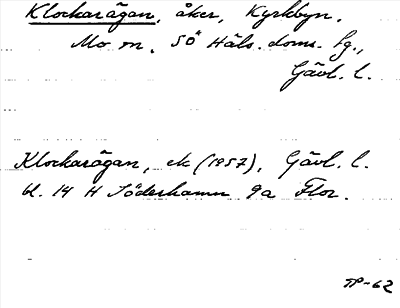 Klockarägan, åker, Kyrkbyn.
Mo sn, SÖ Häls. doms. fg.,
Gävl. l.
Klockarägan, ek (1957), Gävl. l.
bl. 14 H Söderhamn 9a Flor.
TP-62